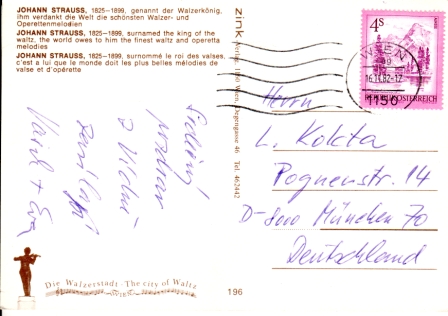 JOHANN STRAUSS, 1825-1899, genannt der Walzerkönig,
ihm verdankt die Welt die schönsten Walzer- und
Operettenmelodien
JOHANN STRAUSS, 1825-1899, surnamed the king of the
waltz, the world owes to him the finest waltz and operetta
melodies
JOHANN STRAUSS, 1825-1899, surnommé le roi des valses,
c'est a lui que le monde doit les plus belles mélodies de
valse et d'opérette
zink
1180 Wien
46 Tel. 462442
4S
WIEN
1150
REPUBLIK ÖSTERREICH
Herrn
L. Kokta
Pognerstr. 14
D-8000 München 70
Deutschland
z Vídně
Die Walzerstadt - The city of Waltz
WIEN
196